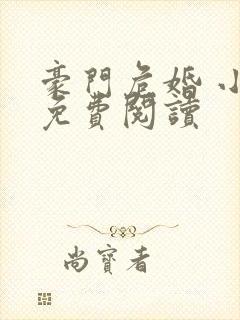 豪門危婚 小
免費閱讀
尚寶者